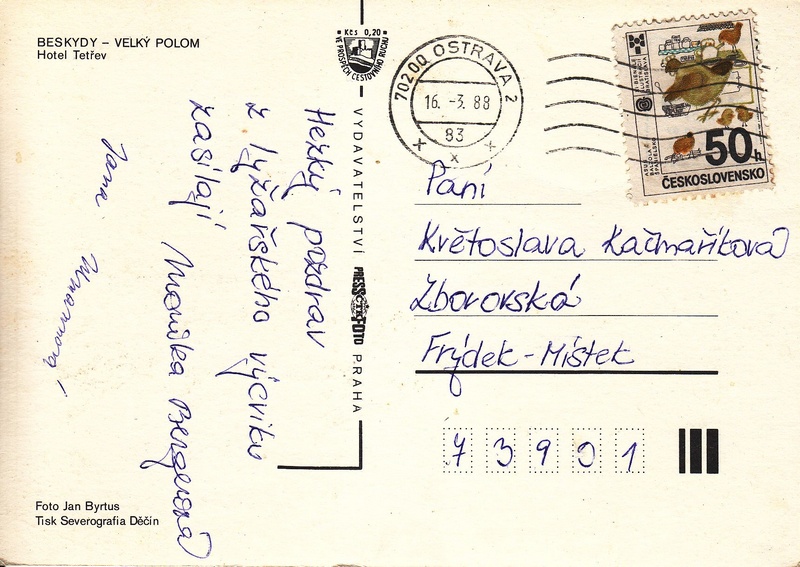 BESKYDY – VELKÝ POLOM
Hotel Tetřev
Hezký pozdrav
z lyžařského výcviku
zasílají Monika Bergerová
Jana
Foto Jan Byrtus
Tisk Severografia Děčín
Kčs 0,20
VE PROSPĚCH CESTOVNÍHO RUCHU
VYDAVATELSTVÍ PRESSFOTO PRAHA
70200 OSTRAVA 2
16. -3. 88
83
50h
ČESKOSLOVENSKO
Paní
Květoslava Kačmaříková
Zborovská
Frýdek-Místek
73901